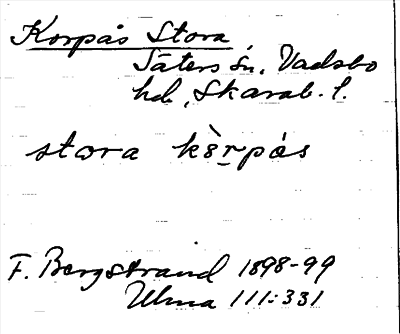 Korpås Stora
Säters sn, Vadsbo
hd, Skarab. l.
stora kòrpás
F. Bergstrand 1898-99
Ulma 111:331